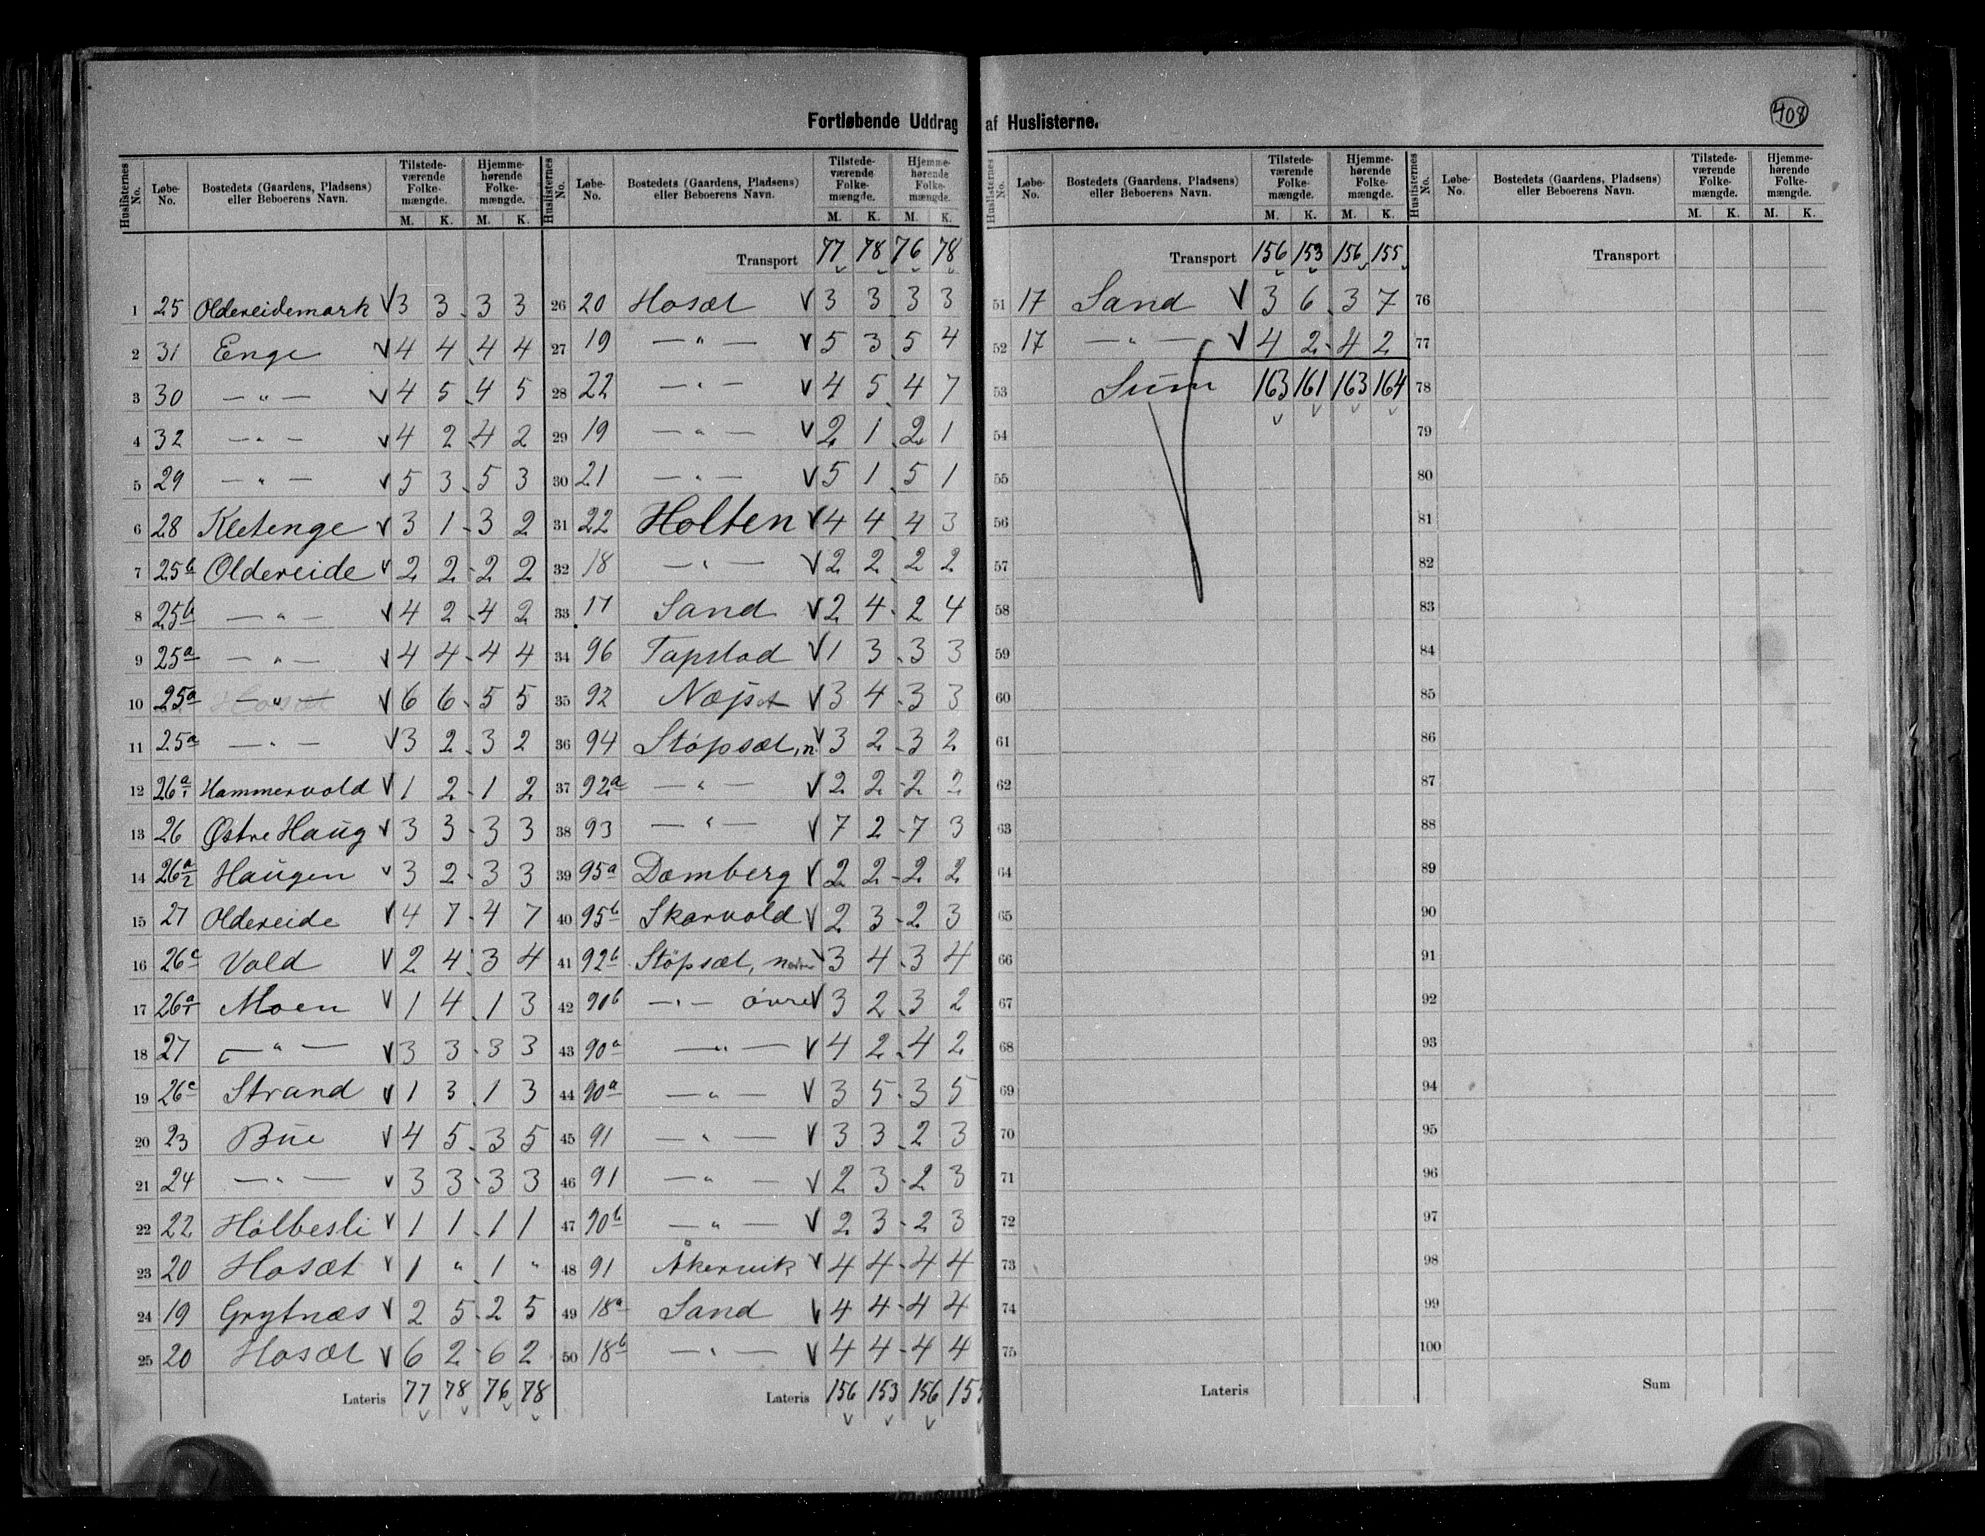 408
Fortløbende Uddrag af Huslisterne.
Huslisternes No. Løbe-No. Bostedets (Gaardens, Pladsens) eller Beboerens Navn. Tilstedeværende Folkemængde. M. K. Hjemmehørende Folkemængde. M. K.
1 25 Oldereidemark V 3 3 3 3
2 31 Enge V 4 4 4 4
3 30 — " — V 4 5 4 5
4 32 — " — V 4 2 4 2
5 29 — " — V 5 3 5 3
6 28 Kletenge V 3 1 3 2
7 25b Oldereide V 2 2 2 2
8 25b — " — V 4 2 4 2
9 25a — " — V 4 4 4 4
10 25a — " — V 6 6 5 5
11 25a — " — V 3 2 3 2
12 26a Hammervold V 1 2 1 2
13 26 Østre Haug V 3 3 3 3
14 26a Haugen V 3 2 3 3
15 27 Oldereide V 4 7 4 7
16 26c Vold V 2 4 3 4
17 26a Moen V 1 4 1 3
18 27 — " — V 3 3 3 3
19 26c Strand V 1 3 1 3
20 23 Bue V 4 5 3 5
21 24 — " — V 3 3 3 3
22 22 Holbesli V 1 1 1 1
23 20 Hosæt V 1 " 1 "
24 19 Grytnæs V 2 5 2 5
25 20 Hosæt V 6 2 6 2
Lateris 77 78 76 78
Huslisternes No. Løbe-No. Bostedets (Gaardens, Pladsens) eller Beboerens Navn. Tilstedeværende Folkemængde. M. K. Hjemmehørende Folkemængde. M. K.
Transport 77 78 76 78
26 20 Hosæt V 3 3 3 3
27 19 — " — V 5 3 5 4
28 22 — " — V 4 5 4 7
29 19 — " — V 2 1 2 1
30 21 — " — V 5 1 5 1
31 22 Holten V 4 4 4 3
32 18 — " — V 2 2 2 2
33 17 Sand V 2 4 2 4
34 96 Tapstad V 1 3 3 3
35 92 V 3 4 3 3
36 94 Støpsæt, n. V 3 2 3 2
37 92a — " — V 2 2 2 2
38 93 — " — V 7 2 7 3
39 95a Dæmberg V 2 2 2 2
40 95b Skarvold V 2 3 2 3
41 92b Støpsæt, nedre V 3 4 3 4
42 90b — " — øvre V 3 2 3 2
43 90a — " — V 4 2 4 2
44 90a — " — V 3 5 3 5
45 91 — " — V 3 3 2 3
46 91 — " — V 2 3 2 3
47 90b — " — V 2 3 2 3
48 91 Åkervik V 4 4 4 4
49 18a Sand V 4 4 4 4
50 18b — " — V 4 4 4 4
Lateris 156 153 156
Huslisternes No. Løbe-No. Bostedets (Gaardens, Pladsens) eller Beboerens Navn. Tilstedeværende Folkemængde. M. K. Hjemmehørende Folkemængde. M. K.
Transport 156 153 156 155
51 17 Sand V 3 6 3 7
52 17 — " — V 4 2 4 2
53 Sum 163 161 163 164
54
55
56
57
58
59
60
61
62
63
64
65
66
67
68
69
70
71
72
73
74
75
Lateris
Huslisternes No. Løbe-No. Bostedets (Gaardens, Pladsens) eller Beboerens Navn. Tilstedeværende Folkemængde. M. K. Hjemmehørende Folkemængde. M. K.
Transport
76
77
78
79
80
81
82
83
84
85
86
87
88
89
90
91
92
93
94
95
96
97
98
99
100
Sum